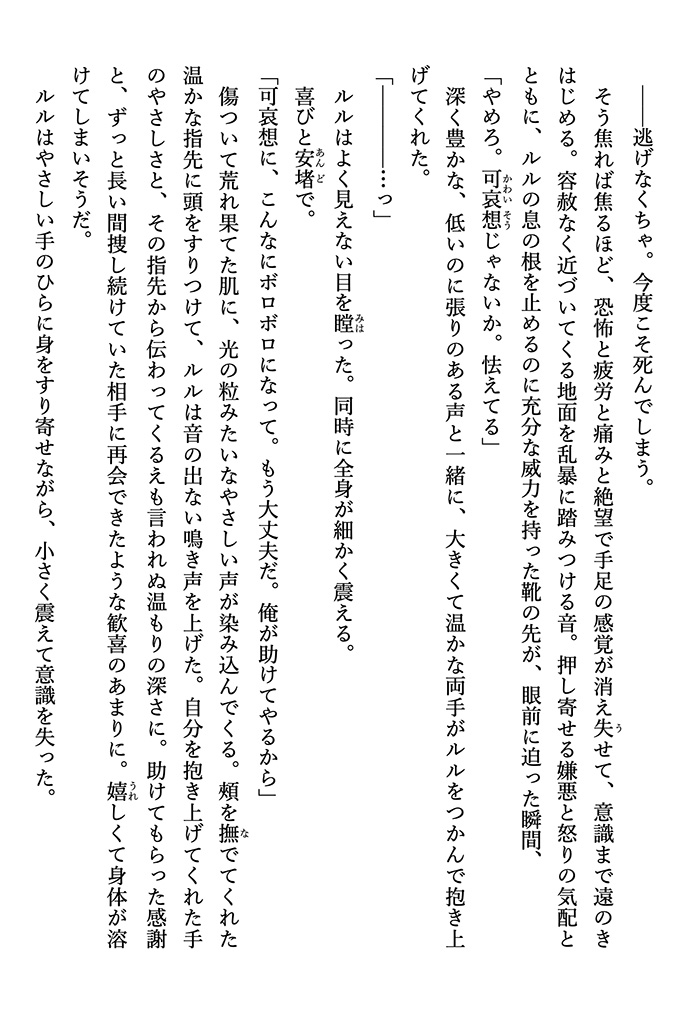 ――逃げなくちゃ。今度こそ死んでしまう。
そう焦れば焦るほど、恐怖と疲労と痛みと絶望で手足の感覚が消え失せて、意識まで遠のき
はじめる。容赦なく近づいてくる地面を乱暴に踏みつける音。押し寄せる嫌悪と怒りの気配と
ともに、ルルの息の根を止めるのに充分な威力を持った靴の先が、眼前に迫った瞬間、
「やめろ。可哀想じゃないか。怯えてる」
深く豊かな、低いのに張りのある声と一緒に、大きくて温かな両手がルルをつかんで抱き上
げてくれた。
「――――…っ」
ルルはよく見えない目を瞠った。同時に全身が細かく震える。
喜びと安堵で。
「可哀想に、こんなにボロボロになって。もう大丈夫だ。俺が助けてやるから」
傷ついて荒れ果てた肌に、光の粒みたいなやさしい声が染み込んでくる。頰を撫でてくれた
温かな指先に頭をすりつけて、ルルは音の出ない鳴き声を上げた。自分を抱き上げてくれた手
のやさしさと、その指先から伝わってくるえも言われぬ温もりの深さに。助けてもらった感謝
と、ずっと長い間捜し続けていた相手に再会できたような歓喜のあまりに。嬉しくて身体が溶
けてしまいそうだ。
ルルはやさしい手のひらに身をすり寄せながら、小さく震えて意識を失った。